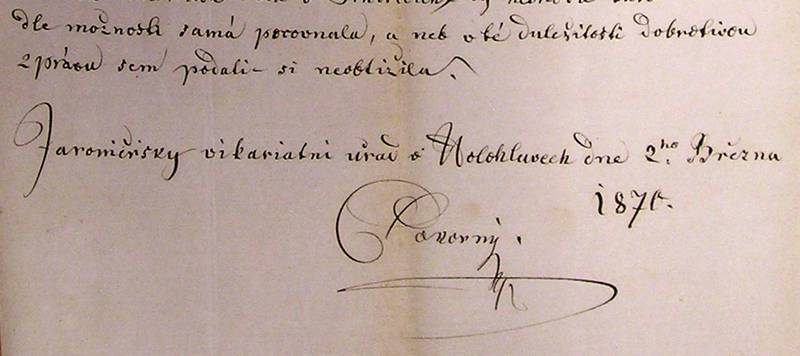 dle možnosti samá porovnala, a neb o té duležitosti dobrotivou
zprávu sem podati si neobtižila.
Jaroměřský vikariatní uřad v Holohlavech dne 2ho Března
187
Pokorný.